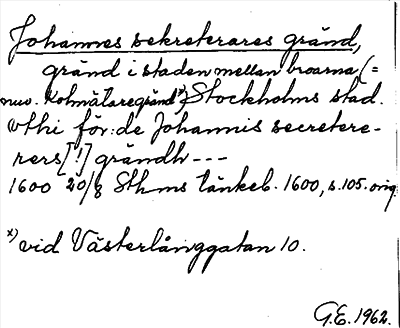 Johannes sekreterares gränd,
gränd i staden mellan broarna (=
nuv. Kolmätaregränd x)) Stockholms stad.
vthi för:de Johannis secretere-
rers [!] grändh ---
1600 20/8 Sthms tänkeb. 1600, s. 105. orig.
x) vid Västerlånggatan 10.
G.E. 1962.